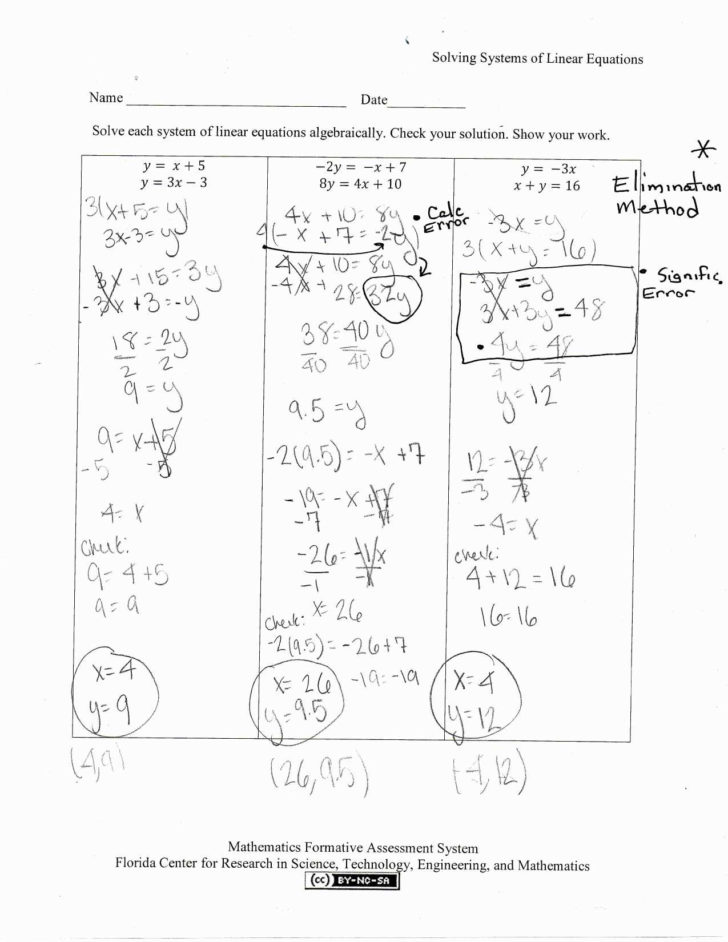 Solving Systems of Linear Equations
Name
Date
Solve each system of linear equations algebraically. Check your solution. Show your work.
y = x + 5
y = 3x − 3
3(x+5=y)
3x-3=y
3x+15=3y
-3x+3=-y
18=2y
2 2
9=y
9=x+5
-5 -5
4=x
check:
9=4+5
9=9
x=4
y=9
(4,9)
−2y = −x + 7
8y = 4x + 10
4x+10=8y
4(-x+7=-2y)
• Calc
Error
4x+10=8y
-4x+28=32y
38=40y
40 40
9.5=y
-2(9.5)=-x+7
-19=-x+7
-7 -7
-26=-1x
-1 -1
check: x=26
-2(9.5)=-26+7
-19=-19
x=26
y=9.5
(26,9.5)
y = −3x
x + y = 16
-3x=y
3(x+y=16)
-3x=y
3x+3y=48
• 4y=48
4 4
y=12
12=-3x
-3 -3
-4=x
check:
4+12=16
16=16
x=4
y=12
(-4,12)
*
Elimination
Method
• Signific
Error
Mathematics Formative Assessment System
Florida Center for Research in Science, Technology, Engineering, and Mathematics
(cc) BY-NC-SA